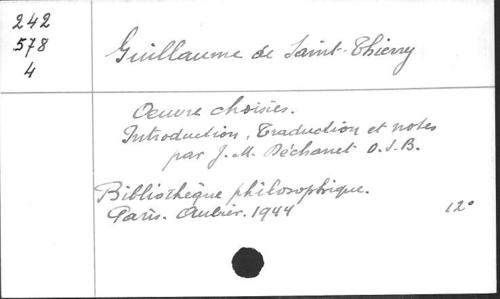 242
578
4
Guillaume de Saint-Thierry
Oeuvre choisies.
Introduction, Traduction et notes
par J.-M. Déchanet O.S.B.
Bibliothèque philosophique.
Paris. Aubier. 1944
12°